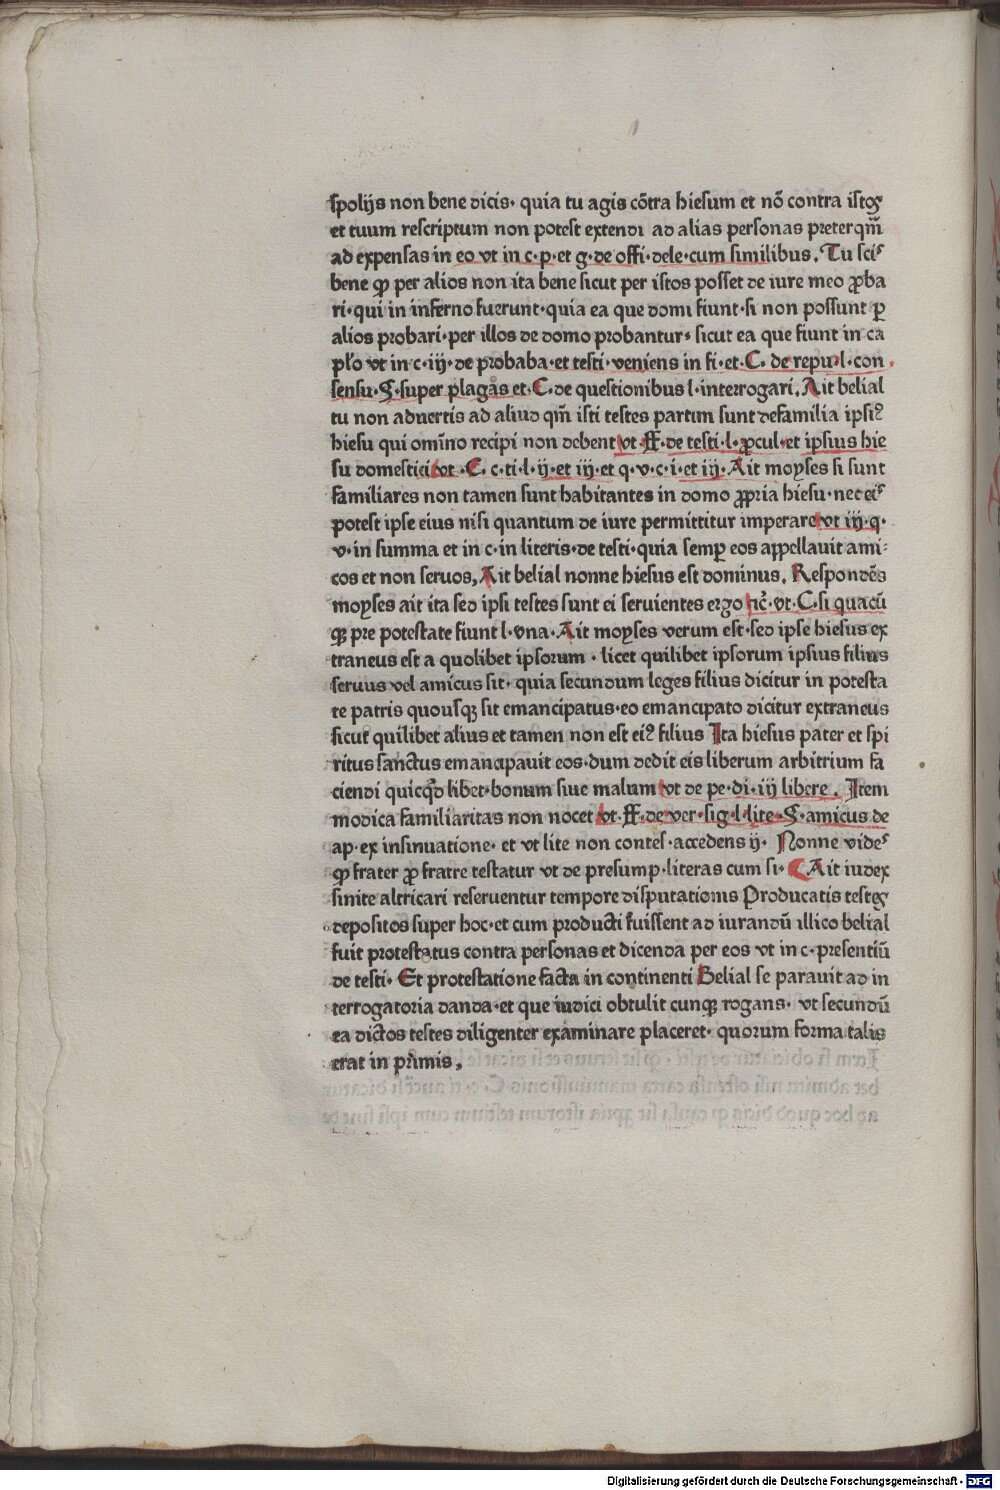 spolijs non bene dicis· quia tu agis cōtra hiesum et nō contra istoꝝ
et tuum rescriptum non potest extendi ad alias personas preterqm̄
ad expensas in eo vt in c·p·et g·de offi·dele·cum similibus. Tu sciꝰ
bene ꝙ per alios non ita bene sicut per istos posset de iure meo ꝓba
ri·qui in inferno fuerunt·quia ea que domi fiunt·si non possunt ꝑ
alios probari·per illos de domo probantur· sicut ea que fiunt in ca
pl'o vt in c·iij·de probaba·et testi·veniens in fi·et·C· de repu·l·con
sensu·§·super plagas et·C·de questionibus l·interrogari. Ait belial
tu non aduertis ad aliud qm̄ isti testes partim sunt defamilia ipsiꝰ
hiesu qui omīno recipi non debent vt·ff·de testi·l·ꝓcul·et ipsius hie
su domestici vt·C· c·ti·l·ij·et iij·et q·v·c·i·et iij·Ait moyses si sunt
familiares non tamen sunt habitantes in domo ꝓpria hiesu·nec eiꝰ
potest ipse eius nisi quantum de iure permittitur imperare vt iij·q·
v·in summa et in c·in literis·de testi·quia semꝑ eos appellauit ami-
cos et non seruos. Ait belial nonne hiesus est dominus. Respondēs
moyses ait ita sed ipsi testes sunt ei seruientes ergo ſic̄·vt·C·si quacū
qꝫ pre potestate fiunt l·vna·Ait moyses verum est·sed ipse hiesus ex
traneus est a quolibet ipsorum·licet quilibet ipsorum ipsius filius
seruus vel amicus sit·quia secundum leges filius dicitur in potesta
te patris quousqꝫ sit emancipatus·eo emancipato dicitur extraneus
sicut quilibet alius et tamen non est eiꝰ filius Ita hiesus pater et spi
ritus sanctus emancipauit eos·dum dedit eis liberum arbitrium fa
ciendi quicqd̄ libet·bonum siue malum vt de pe·di·iij libere. Item
modica familiaritas non nocet vt·ff·de ver·sig·l·lite·§·amicus de
ap·ex insinuatione·et vt lite non contes·accedens ij· Nonne videꝰ
ꝙ frater ꝓ fratre testatur vt de presump·literas cum si· Ait iudex
sinite altricari reseruentur tempore disputationis Producatis testes
depositos super hoc·et cum producti fuissent ad iurandū illico belial
fuit protestatus contra personas et dicenda per eos vt in c·presentiū
de testi· Et protestatione facta in continenti Belial se parauit ad in
terrogatoria danda·et que iudici obtulit cunqꝫ rogans· vt secundū
ea dictos testes diligenter examinare placeret· quorum forma talis
erat in p̄mis.
Digitalisierung gefördert durch die Deutsche Forschungsgemeinschaft - DFG